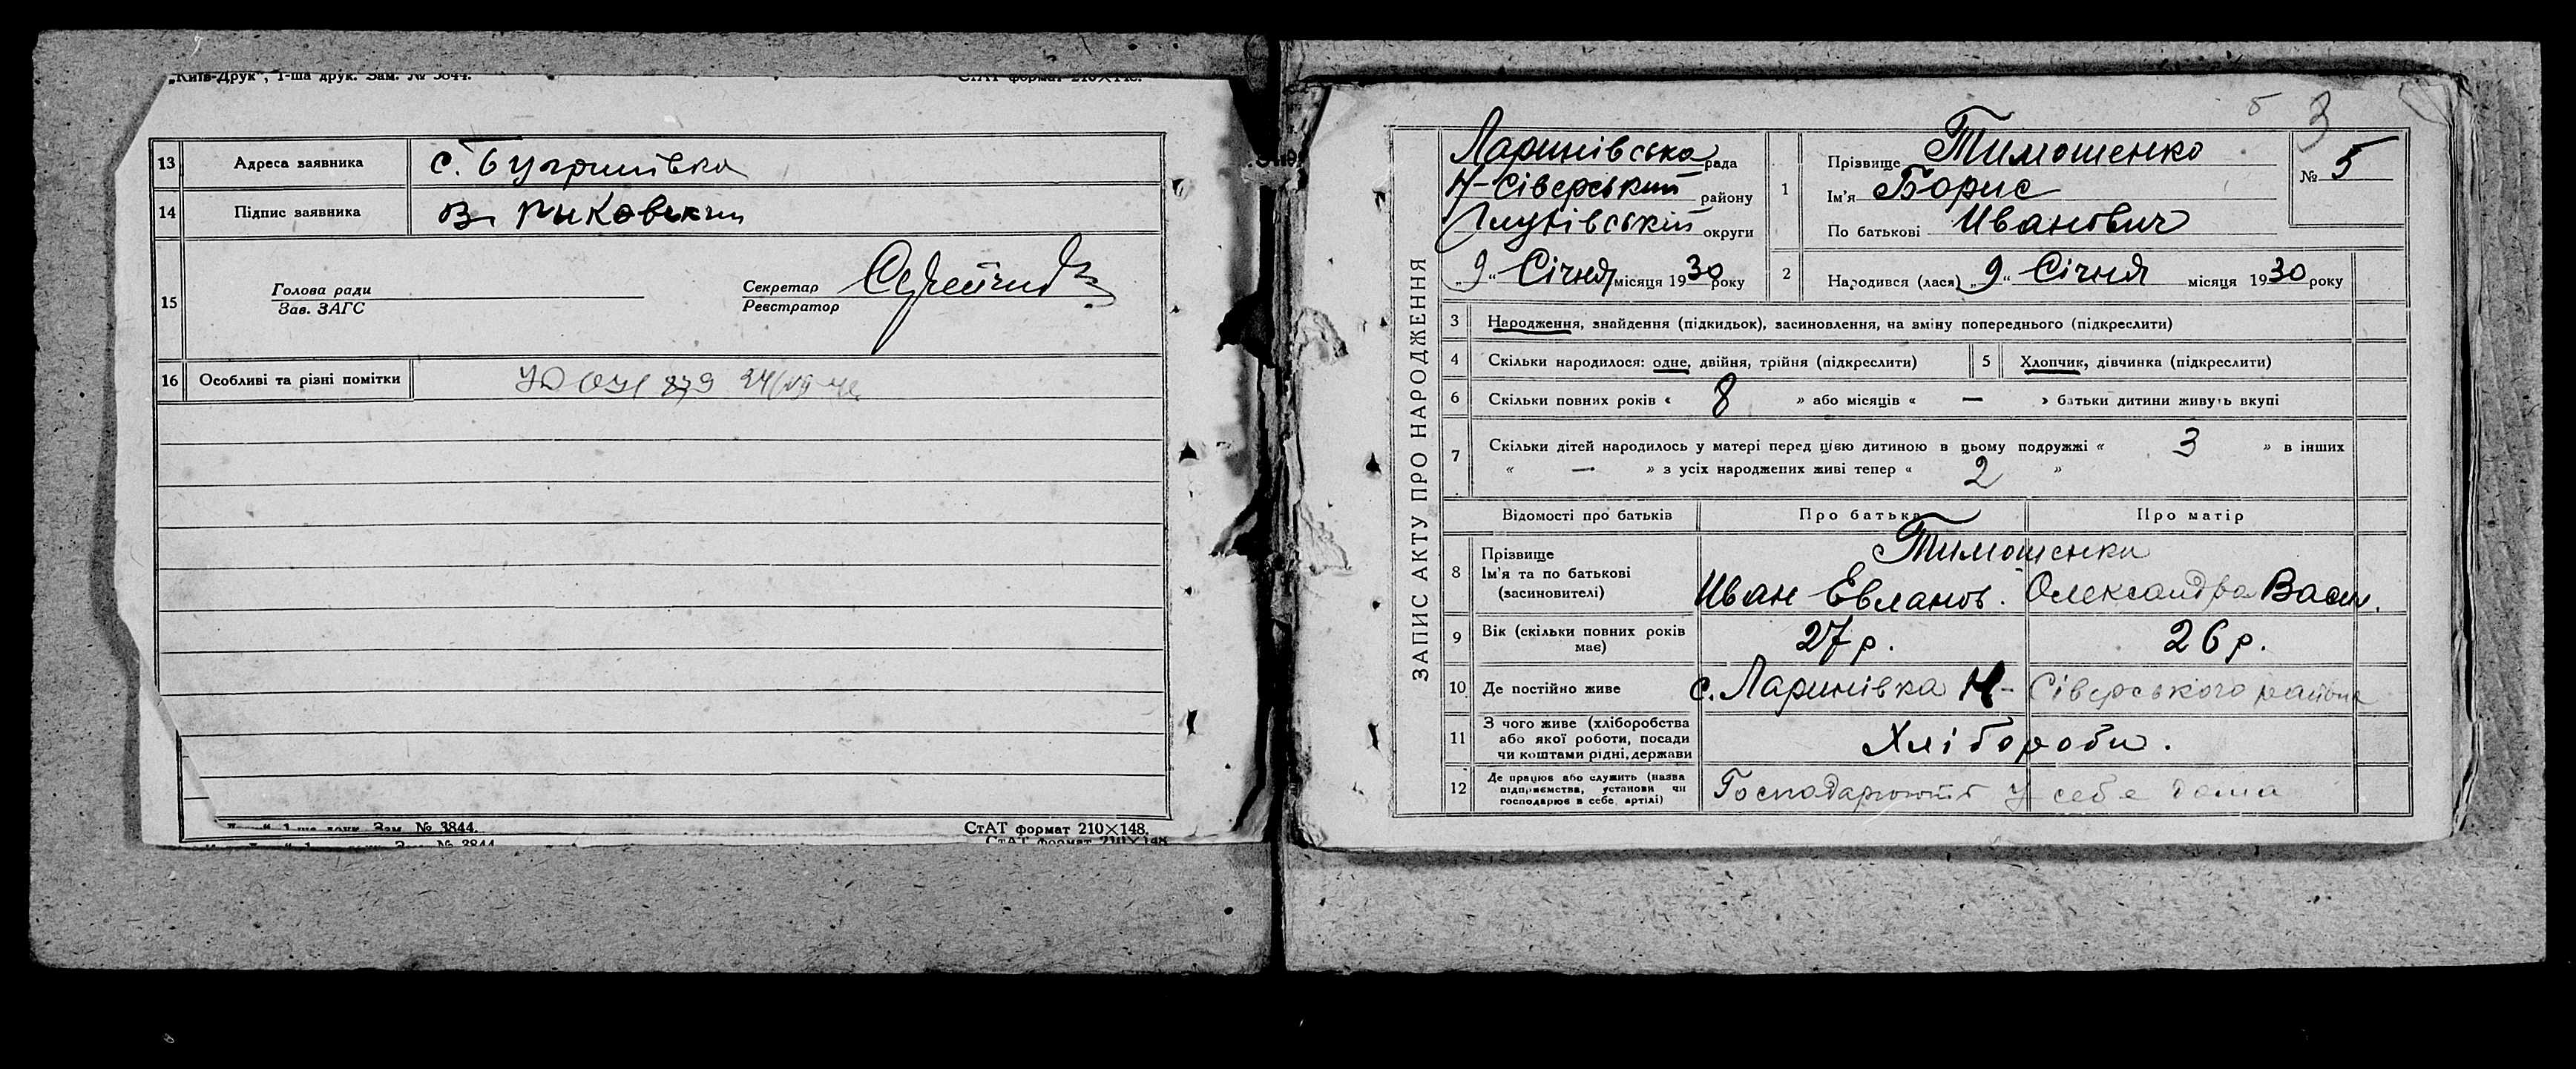 „Київ-Друк", 1-ша друк. Зам. № 3844.
СтАТ формат 210×148.
13 Адреса заявника с. Бугринівка
14 Підпис заявника
15 Голова ради
Зав. ЗАГС
Секретар
Реєстратор
16 Особливі та різні помітки
1-ша друк. Зам. № 3844.
СтАТ формат 210×148.
Зам. № 3844
СтАТ формат 210×148
3
ЗАПИС АКТУ ПРО НАРОДЖЕННЯ
Ларинівська рада
Н-Сіверський району
Глухівській округи
„9" Січня місяця 1930 року
1 Прізвище Тимошенко
Ім'я Борис
По батькові Иванович
№ 5
2 Народився (лася) „9" Січня місяця 1930 року
3 Народження, знайдення (підкидьок), засиновлення, на зміну попереднього (підкреслити)
4 Скільки народилося: одне, двійня, трійня (підкреслити)
5 Хлопчик, дівчинка (підкреслити)
6 Скільки повних років « 8 » або місяців « — » батьки дитини живуть вкупі
7 Скільки дітей народилось у матері перед цією дитиною в цьому подружжі « 3 » в інших
« — » з усіх народжених живі тепер « 2 »
Відомості про батьків Про батька Про матір
8 Прізвище Тимошенки
Ім'я та по батькові
(засиновителі) Иван Евланов. Олександра Васил.
9 Вік (скільки повних років має) 27 р. 26 р.
10 Де постійно живе с. Ларинівка Н-Сіверського району
11 З чого живе (хліборобства
або якої роботи, посади
чи коштами рідні, держави Хлібороби.
12 Де працює або служить (назва
підприємства, установи чи
господарює в себе, артілі) Господарюють у себе дома